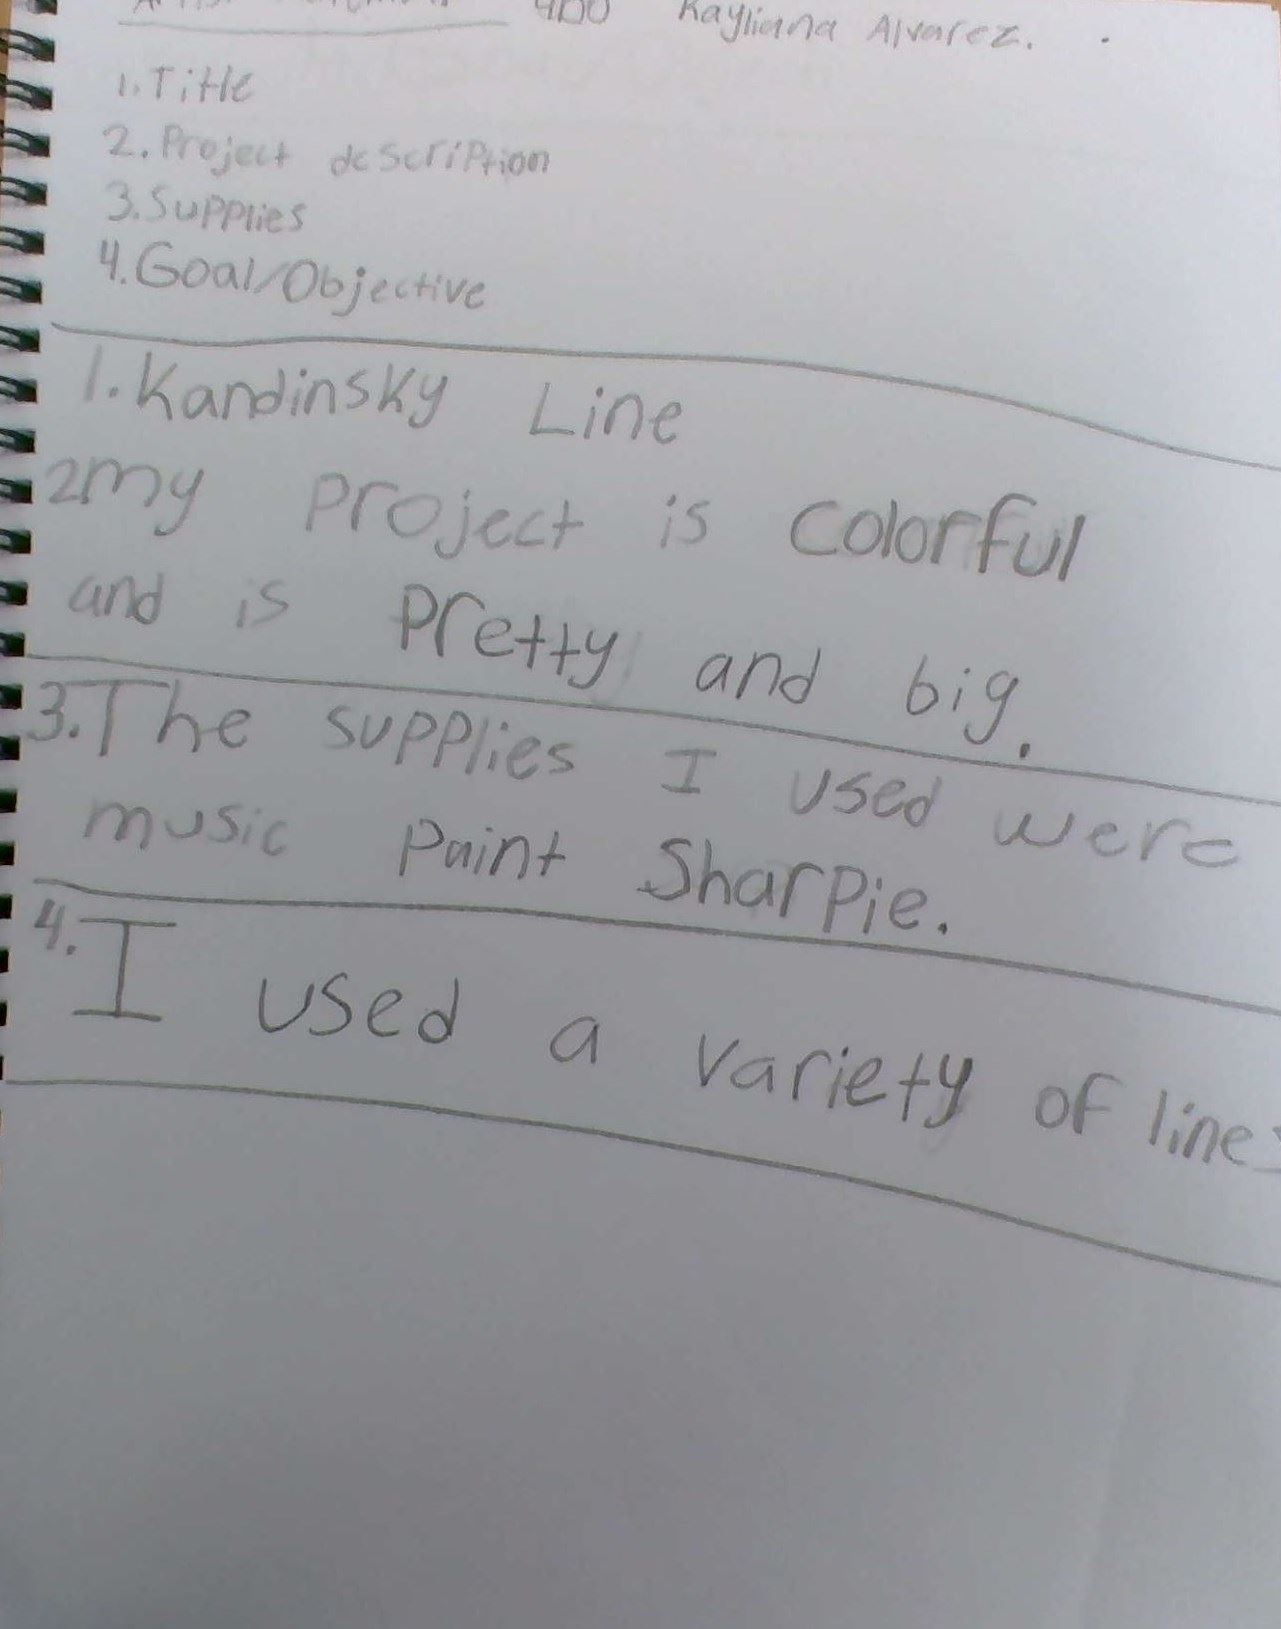 Artist Statement 4DO Kayliana Alvarez.
1. Title
2. Project description
3. Supplies
4. Goal/Objective
1. Kandinsky Line
2 my project is colorful
and is pretty and big.
3. The supplies I used were
music paint Sharpie.
4. I used a variety of lines